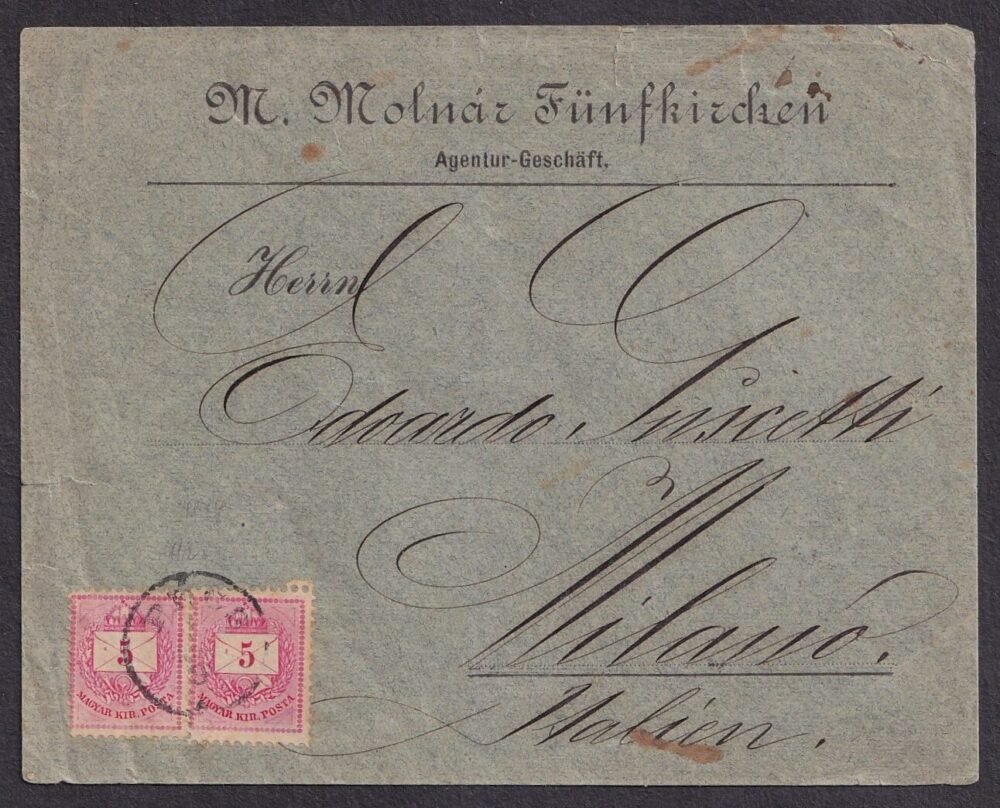 M. Molnár Fünfkirchen
Agentur-Geschäft.
Herrn
Edoardo Guscetti
Milano.
Italien.
5
MAGYAR KIR. POSTA
5
MAGYAR KIR. POSTA